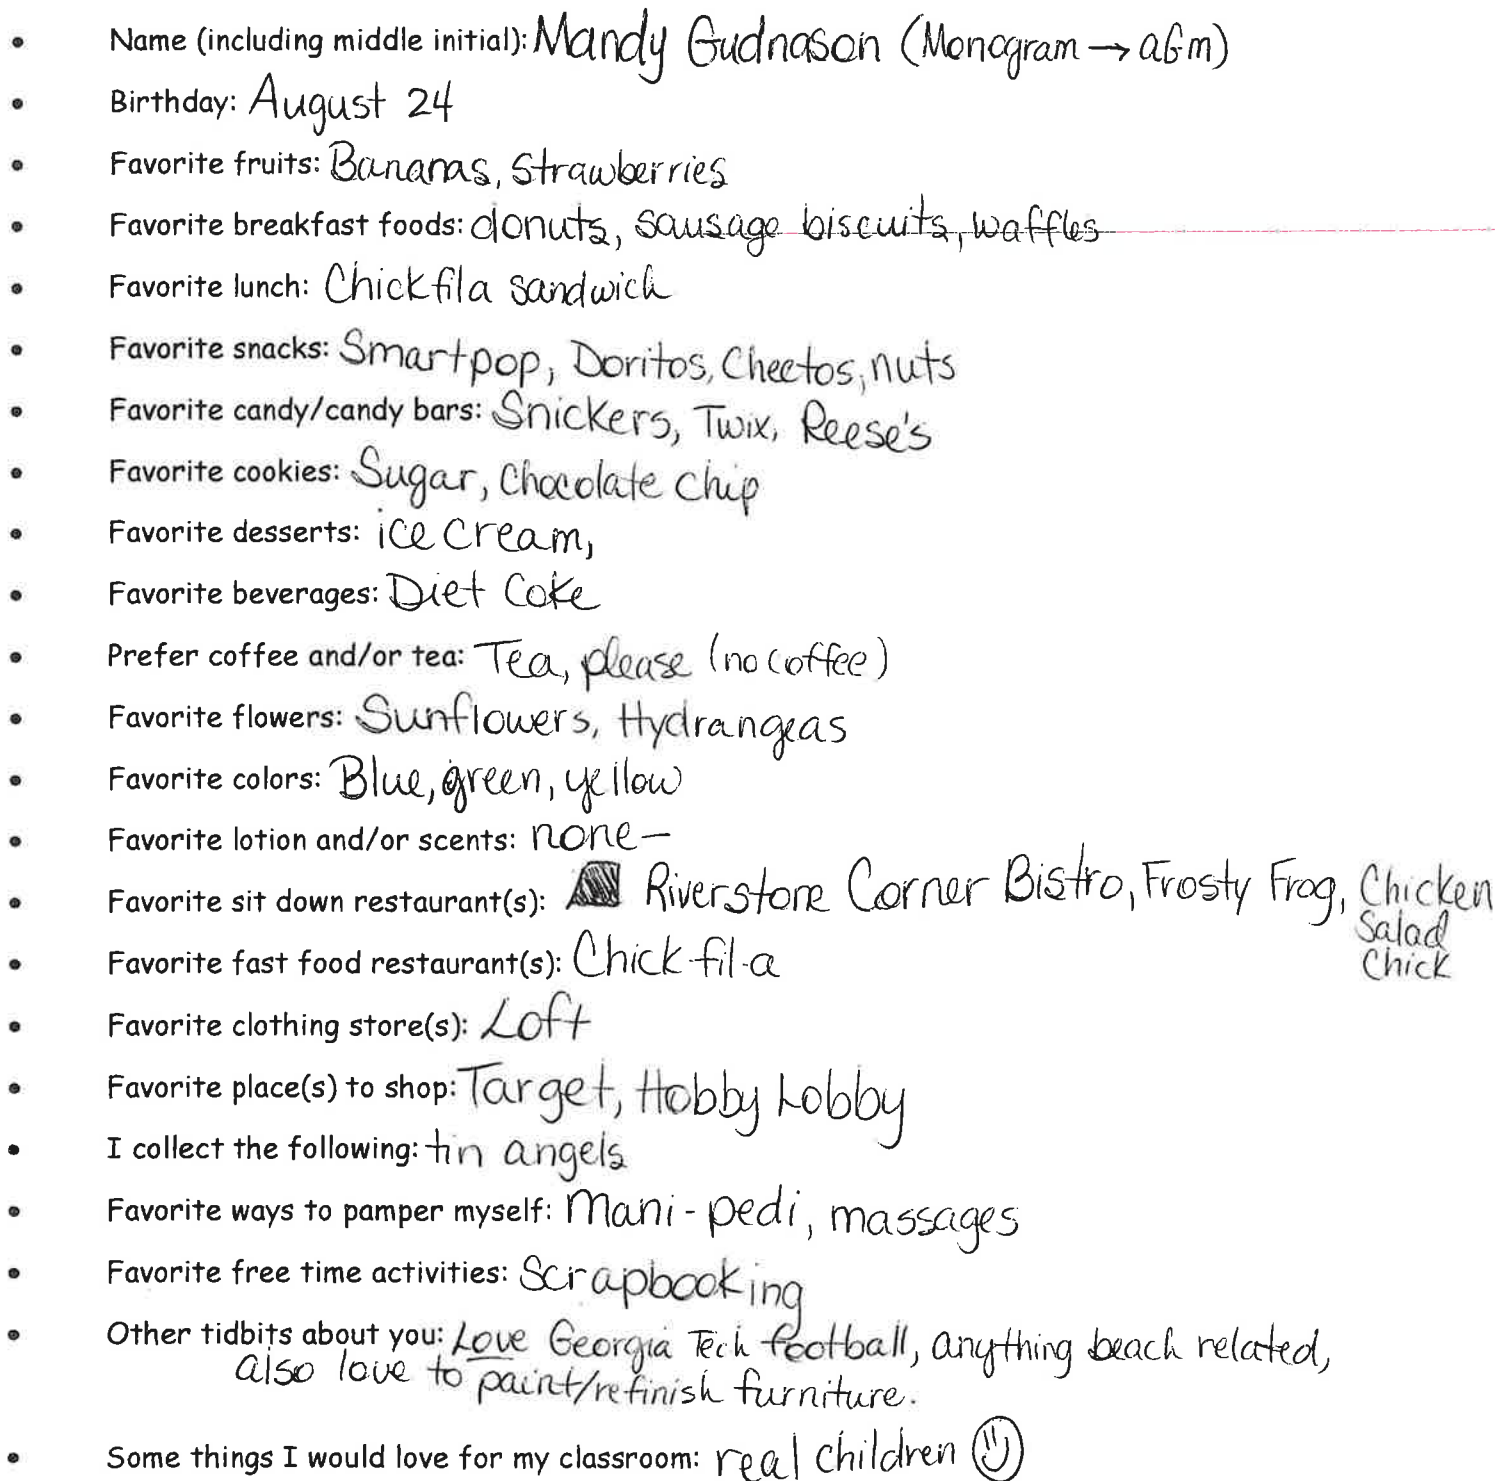 • Name (including middle initial): Mandy Gudnason (Monogram → aGm)
• Birthday: August 24
• Favorite fruits: Bananas, Strawberries
• Favorite breakfast foods: donuts, sausage biscuits, waffles
• Favorite lunch: Chickfila sandwich
• Favorite snacks: Smartpop, Doritos, Cheetos, nuts
• Favorite candy/candy bars: Snickers, Twix, Reese's
• Favorite cookies: Sugar, Chocolate chip
• Favorite desserts: ice cream,
• Favorite beverages: Diet Coke
• Prefer coffee and/or tea: Tea, please (no coffee)
• Favorite flowers: Sunflowers, Hydrangeas
• Favorite colors: Blue, green, yellow
• Favorite lotion and/or scents: none—
• Favorite sit down restaurant(s): Riverstone Corner Bistro, Frosty Frog, Chicken
Salad
Chick
• Favorite fast food restaurant(s): Chick-fil-a
• Favorite clothing store(s): Loft
• Favorite place(s) to shop: Target, Hobby Lobby
• I collect the following: tin angels
• Favorite ways to pamper myself: Mani-pedi, massages
• Favorite free time activities: Scrapbooking
• Other tidbits about you: Love Georgia Tech football, anything beach related,
also love to paint/refinish furniture.
• Some things I would love for my classroom: real children ☺